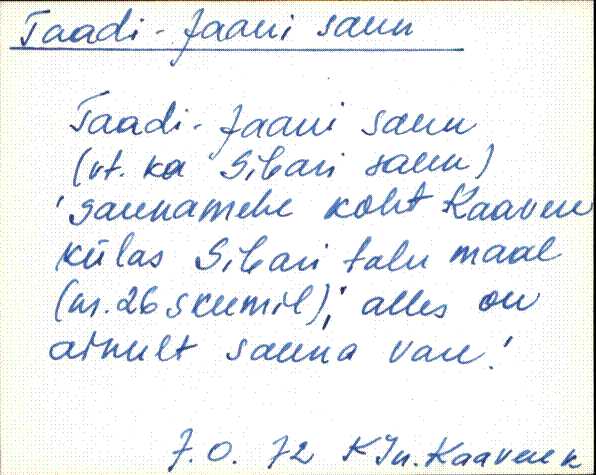 Taadi-Jaani saun
Taadi-Jaani saun
(vt. ka Sibari saun)
'saunamehe koht Kaavere
külas Sibari talu maal
(nr. 26 skeemil); alles on
ainult sauna vare.'
J.O. 72 KJn. Kaavere k